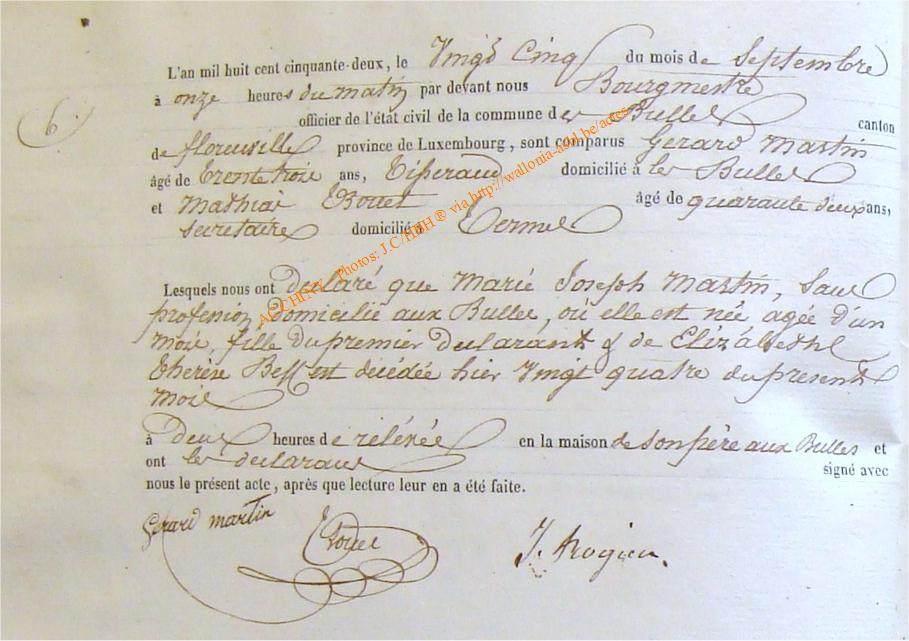 L'an mil huit cent cinquante-deux, le Vingt Cinq du mois de Septembre
à onze heures du matin par devant nous Bourgmestre
officier de l'état civil de la commune des Bulles canton
6.
de florenville province de Luxembourg, sont comparus Gerard Martin
âgé de trente trois ans, Tisserand domicilié à les Bulles
et Mathias âgé de quarante deux ans,
secretaire domicilié à Termes
Lesquels nous ont declaré que Marie Joseph Martin, Sans
profession, domicilié aux Bulles, où elle est née agée d'un
mois, fille du premier declarant & de Elizabeth
Therèse est décédée hier Vingt quatre du present
mois
à Deux heures de relevée en la maison de son père aux Bulles et
ont les declarans signé avec
nous le présent acte, après que lecture leur en a été faite.
Gerard martin
ACCHINA Photos: J.C/HBH® via http://wallonia-asbl.be/actes